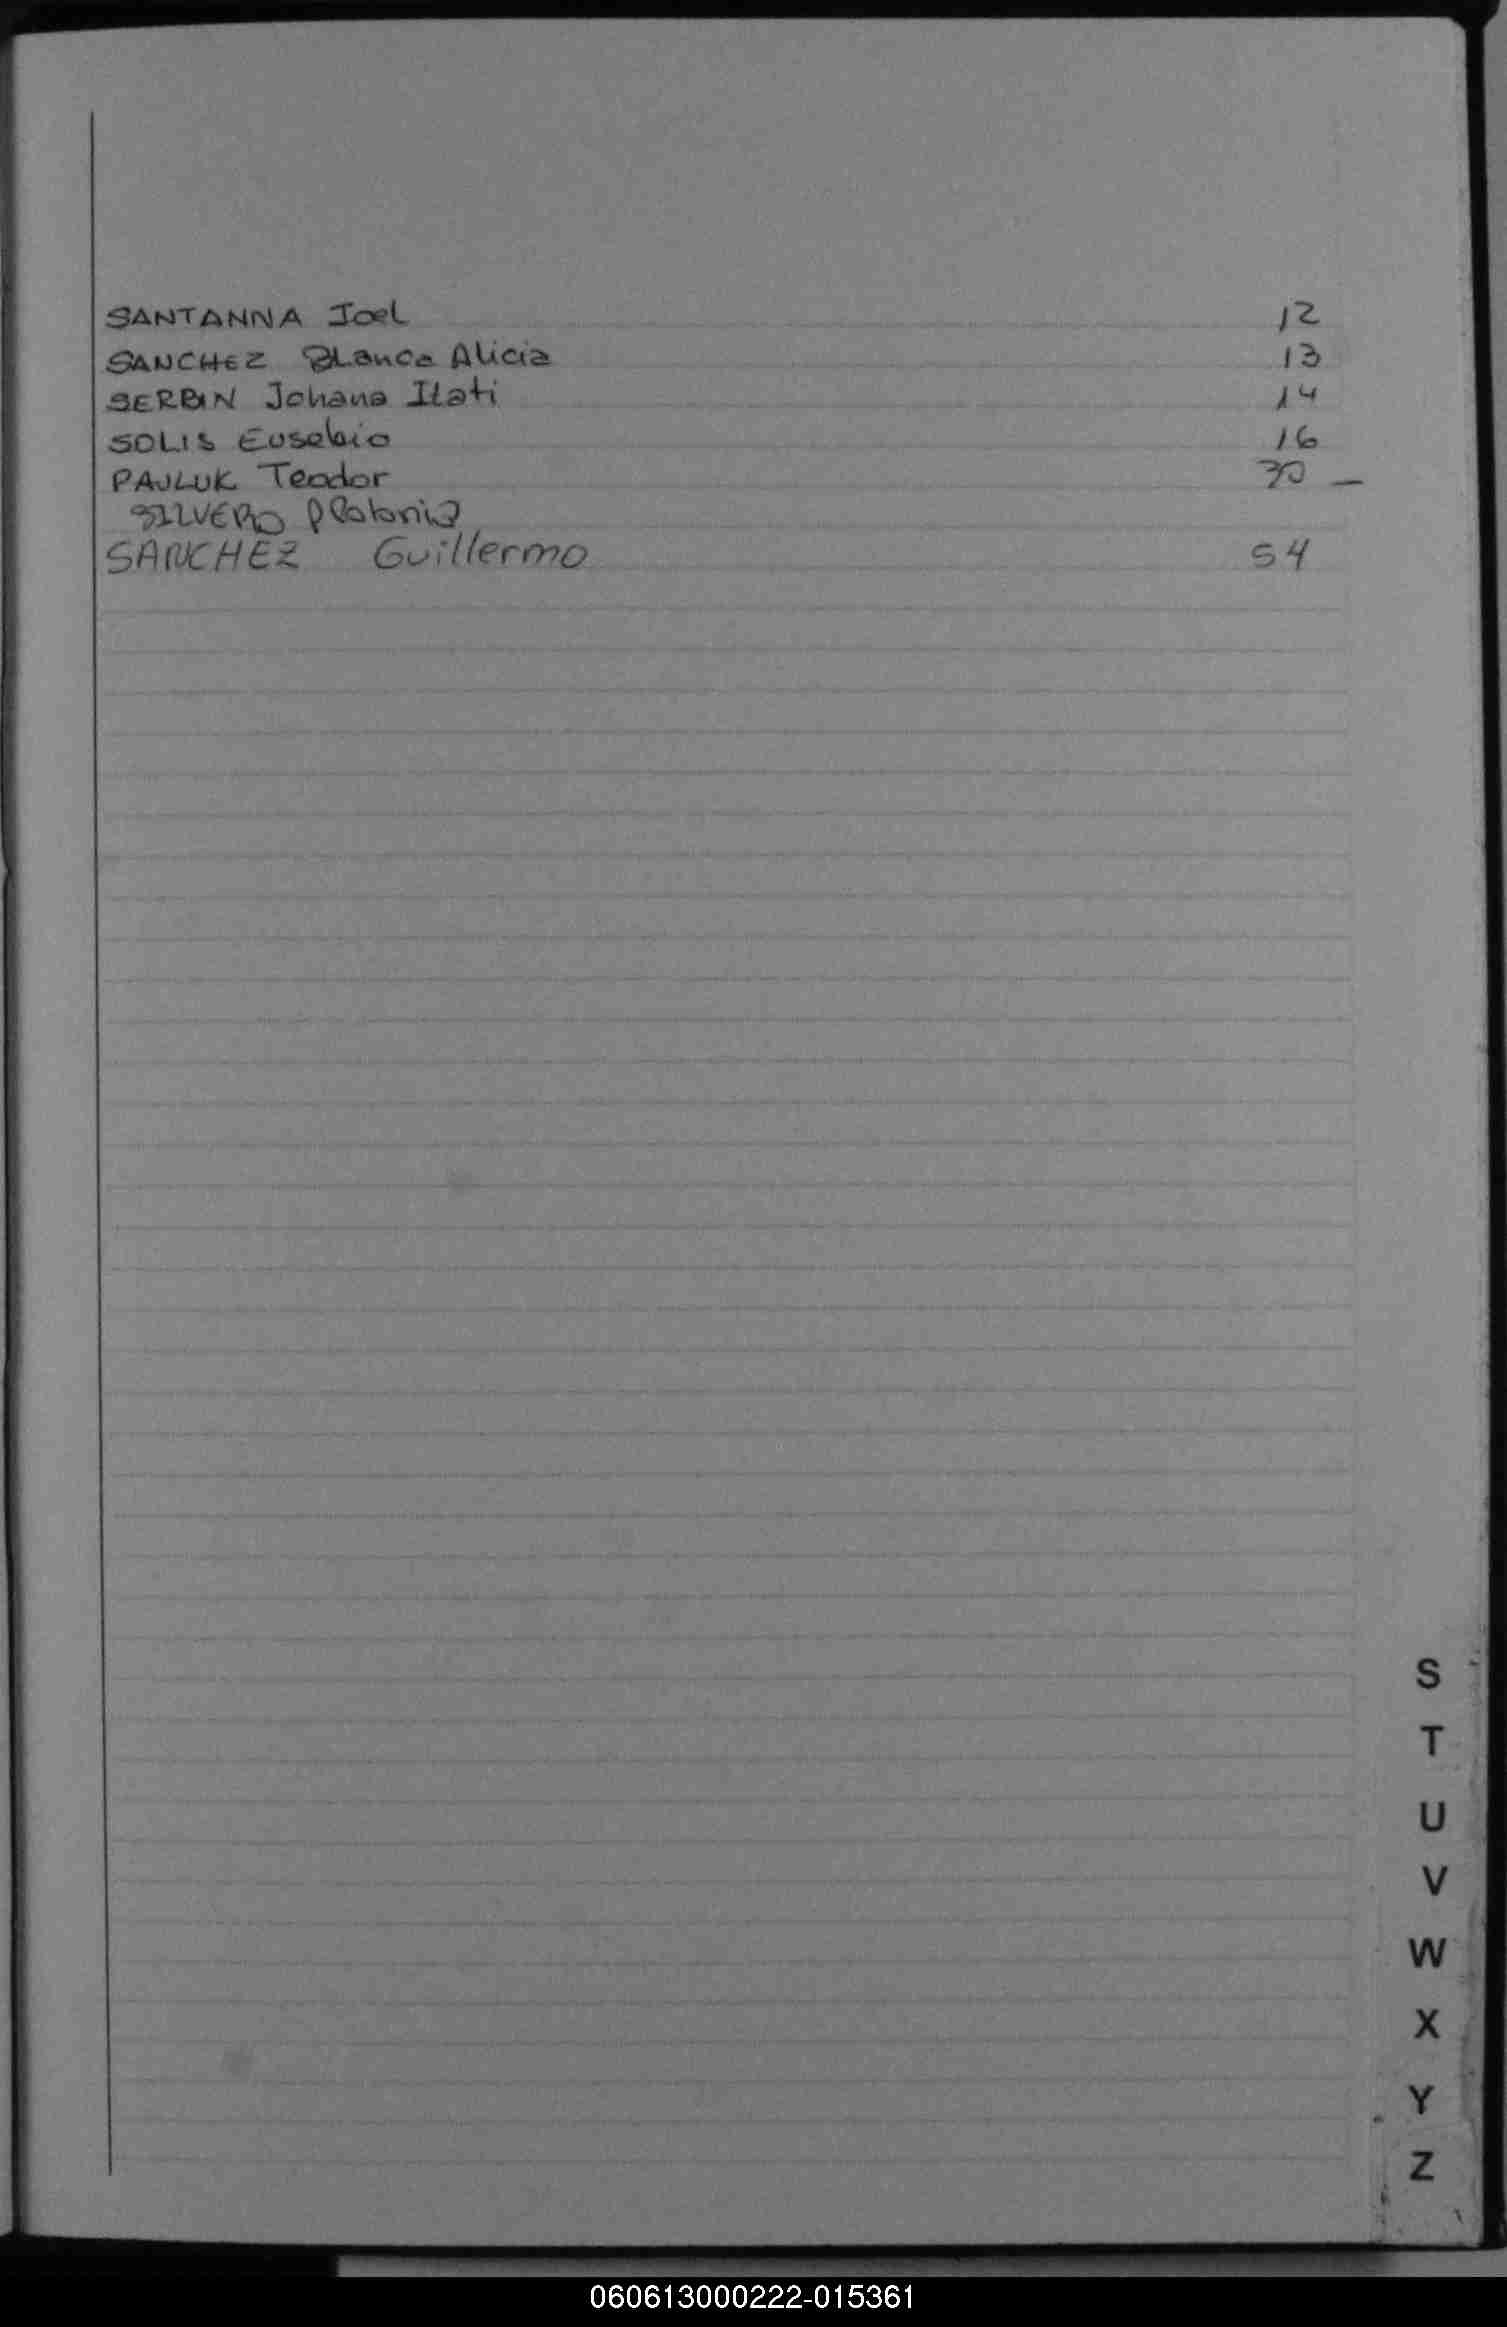 SANTANNA Joel 12
SANCHEZ Blanca Alicia 13
SERBIN Johana Itati 14
SOLIS Eusebio 16
PAJLUK Teodor 30 —
SILVERO
SANCHEZ Guillermo 54
S
T
U
V
W
X
Y
Z
060613000222-015361